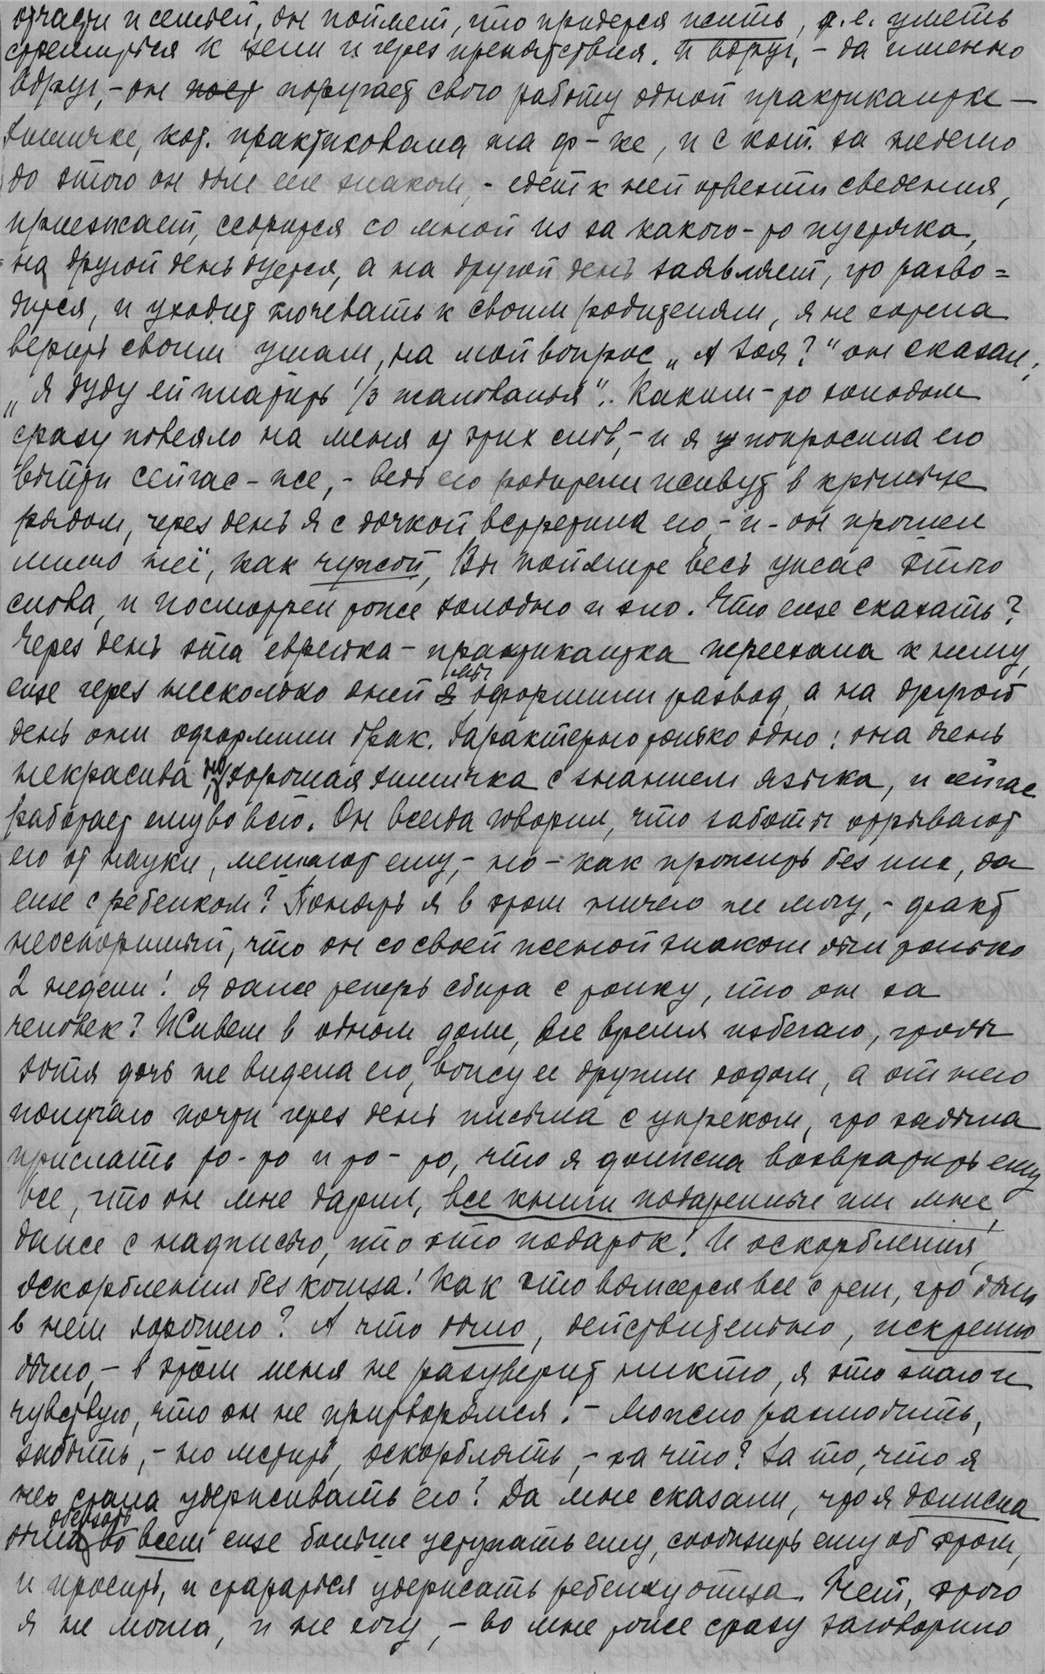 отчасти и семьей, он поймет, что придется жить, т.е. уметь
стремиться к цели и через препятствия. И вдруг, - да именно
вдруг, - он поручает свою работу одной практикантке -
химичке, кот. практиковала на ф-ке, и с кот. за неделю
до этого он был еле знаком, - едет к ней отвезти сведения,
приезжает, ссорится со мной из за какого-то пустяка,
на другой день дуется, а на другой день заявляет, что разво=
дится, и уходит ночевать к своим родителям, я не хотела
верить своим ушам, на мой вопрос "А Зоя?" он сказал,
"я буду ей платить 1/3 жалованья". Каким-то холодом
сразу повеяло на меня от этих слов, - и я попросила его
выйти сейчас-же, - ведь его родители живут в крыльце
рядом, через день я с дочкой встретила его, - и - он прошел
мимо неё, как чужой, Вы поймите весь ужас этого
слова, и посмотрел тоже холодно и зло. Что еще сказать?
Через день эта еврейка - практикантка переехала к нему,
еще через несколько дней мы оформили развод, а на другой
день они оформили брак. Характерно только одно: она очень
некрасива, но хорошая химичка с знанием языка, и сейчас
работает ему во всю. Он всегда говорил, что заботы отрывают
его от науки, мешают ему, - но - как прожить без них, да
еще с ребенком? Понять я в этом ничего не могу, - факт
неоспоримый, что он со своей женой знаком был только
2 недели! Я даже теперь сбита с толку, что он за
человек? Живем в одном доме, все время избегаю, чтобы
хотя дочь не видела его, вожу ее другим ходом, а от него
получаю почти через день письма с упреком, что забыла
прислать то-то и то-то, что я должна возвратить ему
все, что он мне дарил, все книги подаренные им мне,
даже с надписью, что это подарок! И оскорбления,
оскорбления без конца! Как это вяжется все с тем, что было
в нем хорошего? А что было, действительно, искренно
было, - в этом меня не разуверит никто, я это знаю и
чувствую, что он не притворялся! - Можно разлюбить,
забыть, - но мстить, оскорблять, - за что? За то, что я
не стала удерживать его? Да мне сказали, что я должна
была во всем еще больше уступать ему, сообщить ему об этом,
и просить, и стараться удержать ребенку отца. Нет, этого
я не могла, и не хочу, - во мне тоже сразу заговорило